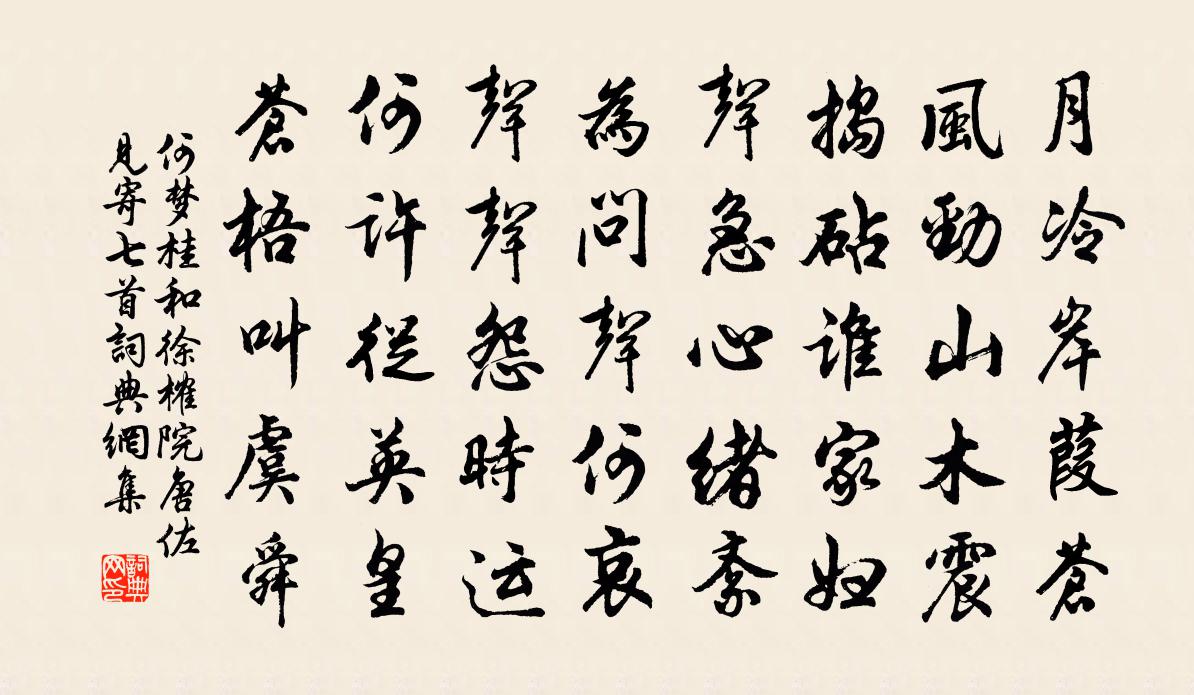 月冷岸葭蒼
風勁山木震
搗砧誰家妲
聲急心緒紊
為問聲何哀
聲聲怨時运
何許從英皇
蒼梧叫虞舜
何梦桂和徐榷院唐佐
見寄七首詞典網集
詞典
网印